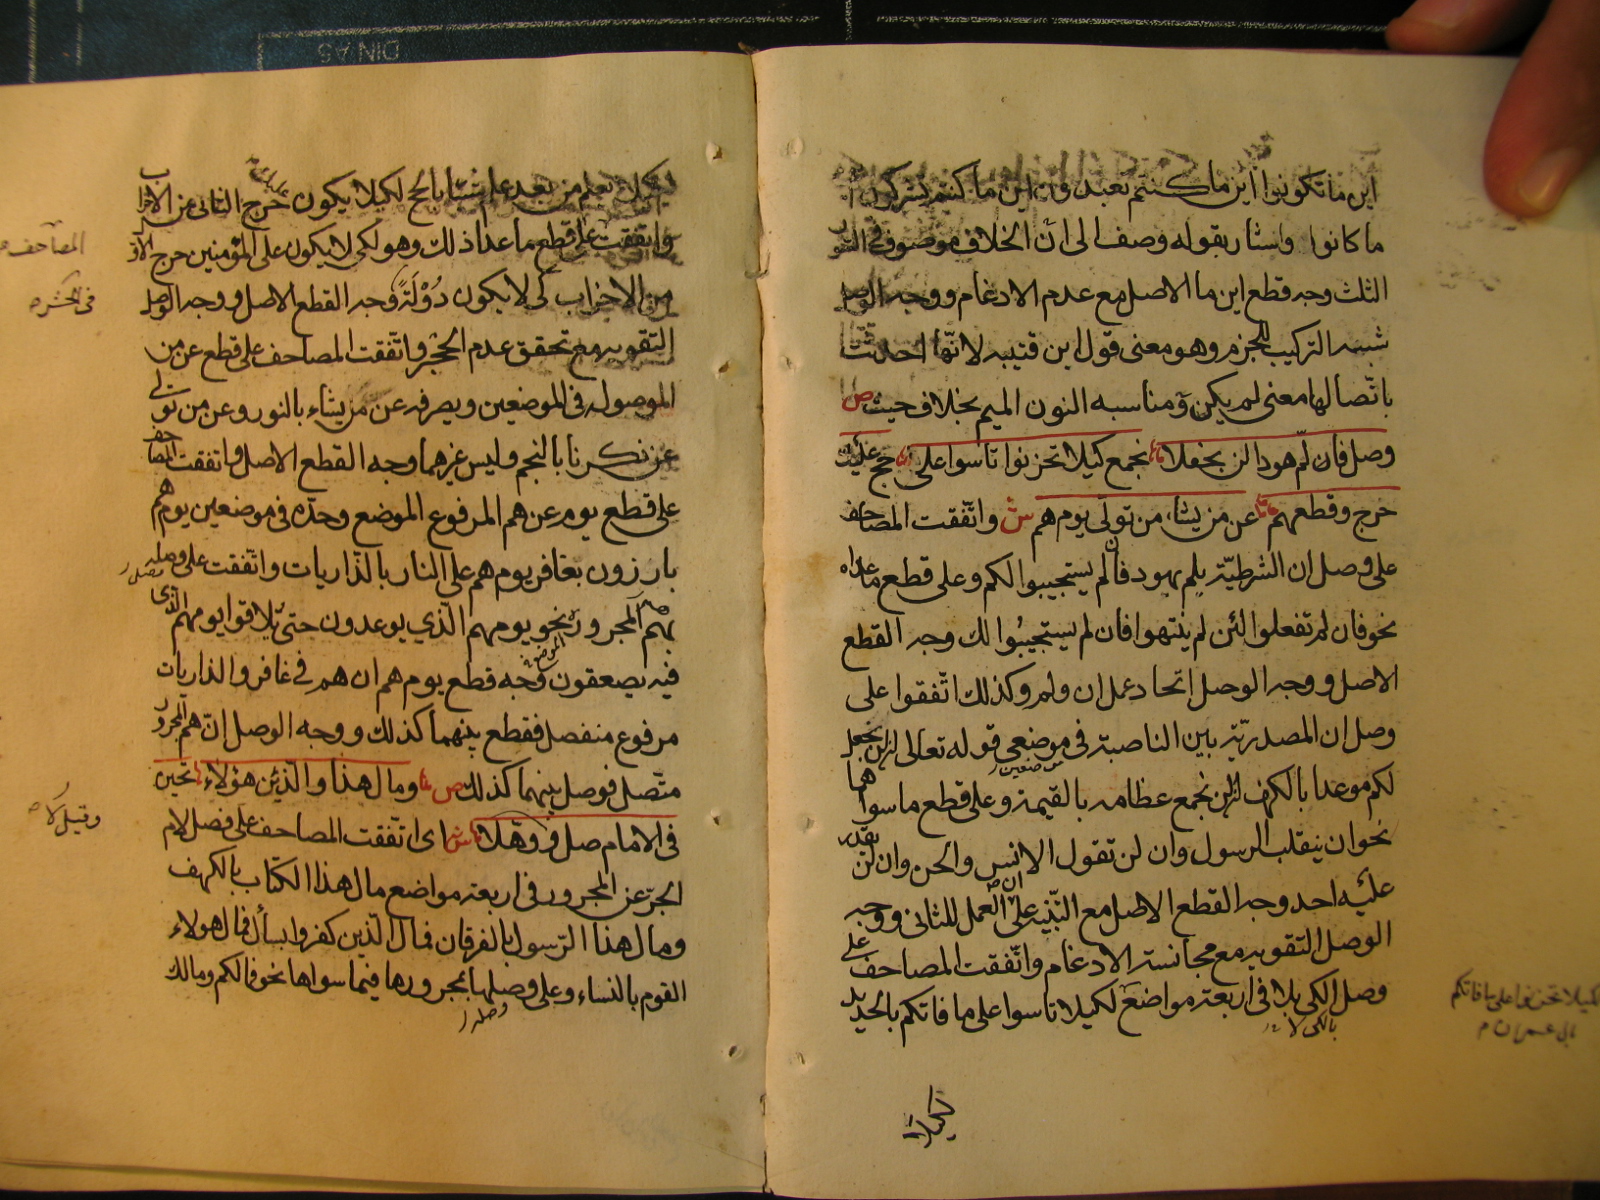 اين ما تكونوا اين ما كنتم تعبدون اين ما كنتم تشركون
ما كانوا واشار بقوله وصف الى ان الخلاف موصوف في
الثلث وجه قطع اين ما الاصل مع عدم الادغام ووجه الوصل
شبه التركيب للجزم وهو معنى قول ابن قتيبه لانها احدثت
باتصالها معنى لم يكن ومناسبه النون الميم بخلاف حيث ص
وصل فان لم هود الن نجعلا نجمع كيلا تحزنوا تأسوا على حج عليك
حرج وقطعهم عن من يشاء من تولى يوم هم ش واتفقت المصاحف
على وصل ان الشرطيّة بلم بهود فالم يستجيبوا لكم وعلى قطع ما عداه
نحو فان لم تفعلوا لئن لم ينتهوا فان لم يستجيبوا لك وجه القطع
الاصل ووجه الوصل اتحاد عمل ان ولم وكذلك اتفقوا على
وصل ان المصدريّة بلن الناصبة في موضعي قوله تعالى الن نجعل
لكم موعدا بالكهف الن نجمع عظامه بالقيمة وعلى قطع ما سواهما
نحو ان ينقلب الرسول وان لن تقول الانس والجن وان لن يقدر
عليه احد وجه القطع الاصل مع التنبيه على ان العمل للثانى ووجه
الوصل التقويه مع مجانسة الادغام واتفقت المصاحف على
وصل لكى بلا في اربعة مواضع لكيلا تاسوا على ما فاتكم بالحديد
لكيلا تحزنوا على ما فاتكم
بال عمران م
لكيلا
لكيلا يعلم من بعد علم شيئا بالحج لكيلا يكون عليك حرج الثانى من الاحزاب
واتفقت على قطع ما عدا ذلك وهو لكى لا يكون على المؤمنين حرج
من الاحزاب كى لا يكون دُوْلَةً وجه القطع الاصل ووجه الوصل
التقويه مع تحقق عدم الحجز واتفقت المصاحف على قطع عن من
الموصوله في الموضعين ويصرفه عن من يشاء بالنور وعن من تولى
عن ذكرنا بالنجم وليس غيرهما وجه القطع الاصل واتفقت المصاحف
على قطع يوم عن هم المرفوع الموضع وحده في موضعين يوم هم
بارزون بغافر يوم هم على النار بالذاريات واتفقت على وصله
بهم المجرور نحو يومهم الذي يوعدون حتى يلاقوا يومهم الذى
فيه يصعقون وجه قطع يوم هم ان هم في غافر والذاريات
مرفوع منفصل فقطع بينهما كذلك ووجه الوصل انّ هم المجرور
متصل فوصل بينهما كذلك ص ومال هذا والذين هؤلاء تحين
في الامام صل ووهّلا ش اى اتفقت المصاحف على فصل لام
الجرّ عن المجرور في اربعة مواضع مال هذا الكتاب بالكهف
ومال هذا الرسول بالفرقان فمال الذين كفروا بسأل فمال هولاء
القوم بالنساء وعلى وصلها بمجرورها فيما سواها نحو فمالكم ومالك
المصاحف
في الحشر
وقيل لا